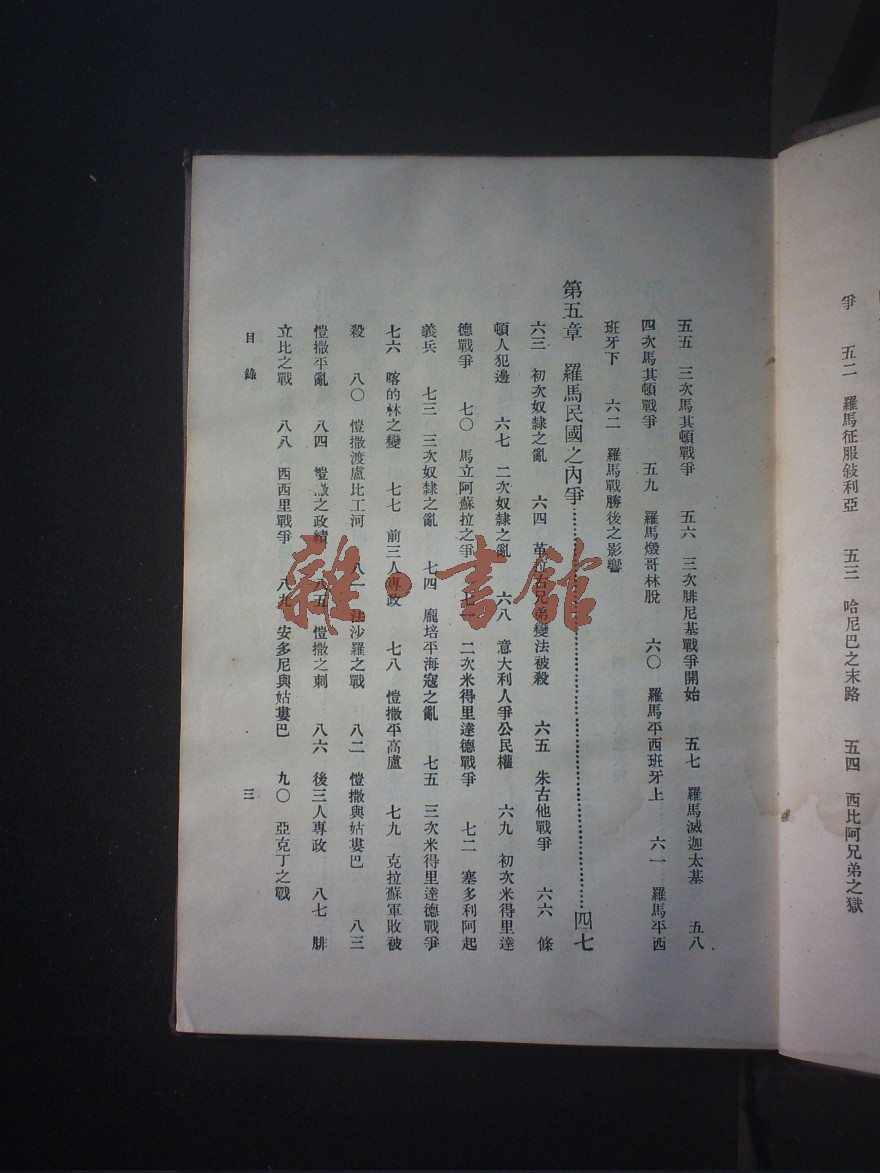 爭　五二　羅馬征服敍利亞　五三　哈尼巴之末路　五四　西比阿兄弟之獄
五五　三次馬其頓戰爭　五六　三次腓尼基戰爭開始　五七　羅馬滅迦太基　五八
四次馬其頓戰爭　五九　羅馬燬哥林脫　六〇　羅馬平西班牙上　六一　羅馬平西
班牙下　六二　羅馬戰勝後之影響
第五章　羅馬民國之內爭……………………四七
六三　初次奴隸之亂　六四　革拉右兄弟變法被殺　六五　朱古他戰爭　六六　條
頓人犯邊　六七　二次奴隸之亂　六八　意大利人爭公民權　六九　初次米得里達
德戰爭　七〇　馬立阿蘇拉之爭　七一　二次米得里達德戰爭　七二　塞多利阿起
義兵　七三　三次奴隸之亂　七四　龐培平海寇之亂　七五　三次米得里達德戰爭
七六　喀的林之變　七七　前三人專政　七八　愷撒平高盧　七九　克拉蘇軍敗被
殺　八〇　愷撒渡盧比工河　八一　法沙羅之戰　八二　愷撒與姑婁巴　八三
愷撒平亂　八四　愷撒之政績　八五　愷撒之刺　八六　後三人專政　八七　腓
立比之戰　八八　西西里戰爭　八九　安多尼與姑婁巴　九〇　亞克丁之戰
目錄　三
雜·書館